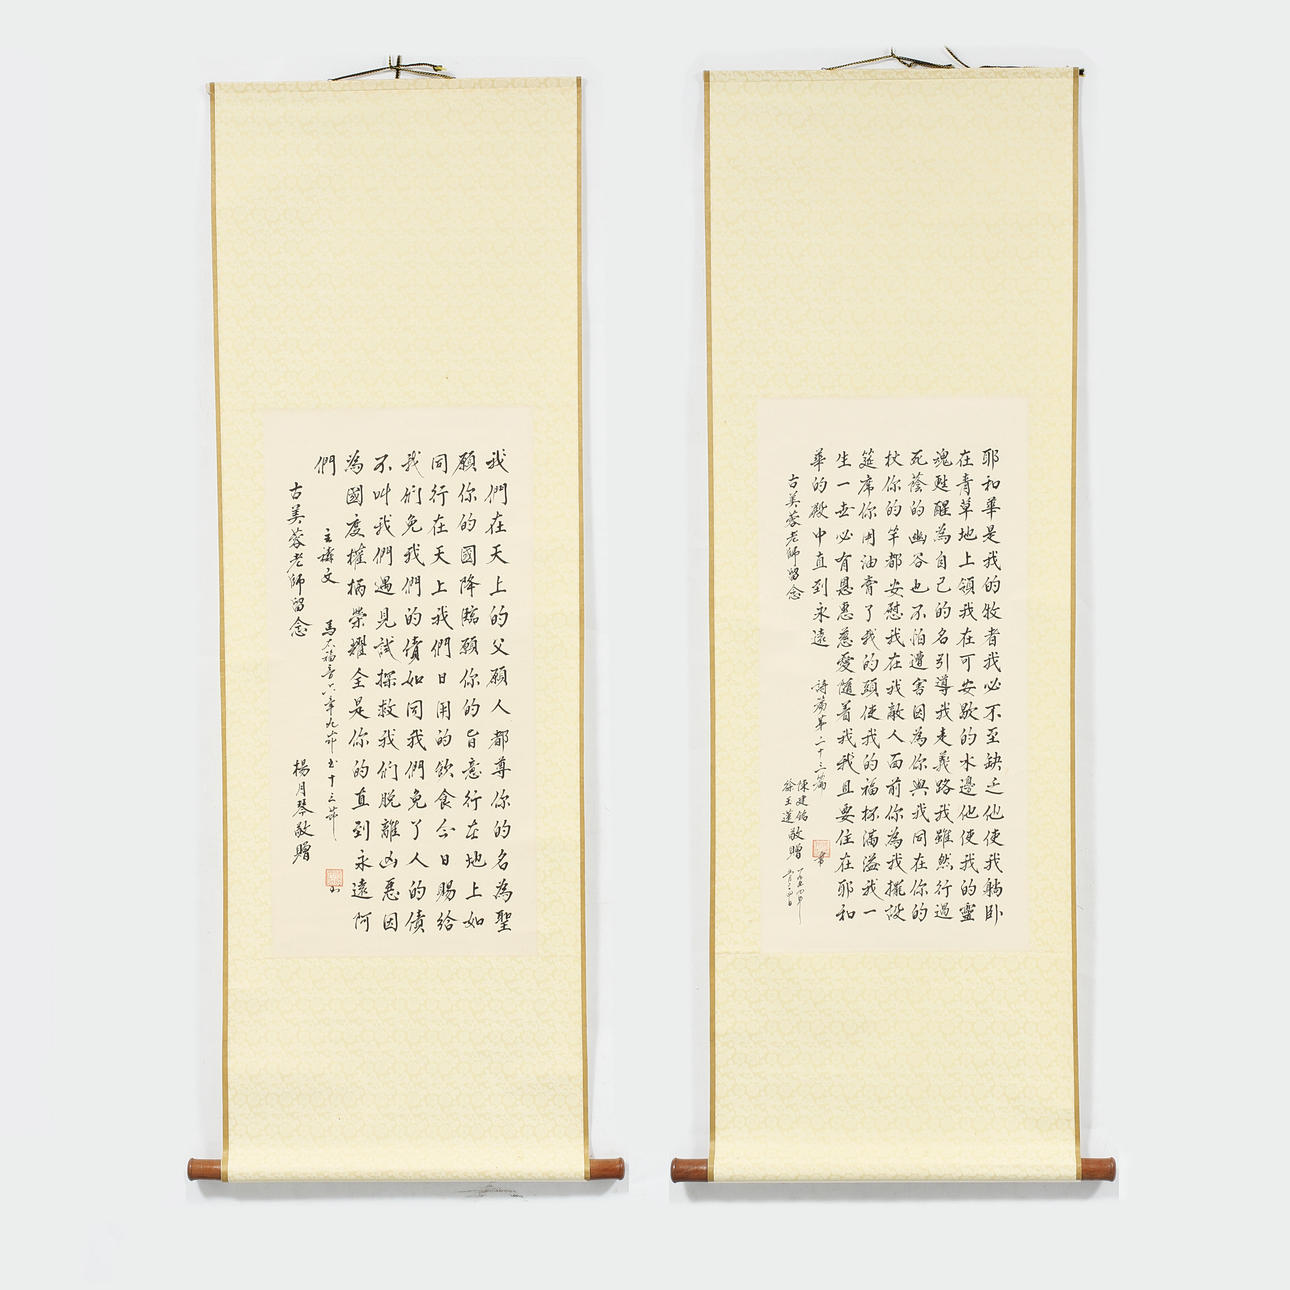 我們在天上的父願人都尊你的名為聖
願你的國降臨願你的旨意行在地上如
同行在天上我們日用的飲食今日賜給
我们免我們的債如同我們免了人的債
不叫我們遇見試探救我们脫離凶惡因
為國度權柄榮耀全是你的直到永遠阿
們 主禱文 馬太福音六章九節至十三節
古美蓉老師留念 楊月琴敬贈
耶和華是我的牧者我必不至缺乏他使我躺臥
在青草地上領我在可安歇的水邊他使我的靈
魂甦醒為自己的名引導我走義路我雖然行過
死蔭的幽谷也不怕遭害因為你與我同在你的
杖你的竿都安慰我在我敵人面前你為我擺設
筵席你用油膏了我的頭使我的福杯滿溢我一
生一世必有恩惠慈愛隨着我我且要住在耶和
華的殿中直到永遠 詩篇第二十三篇 書
古美蓉老師留念 陳建銘 徐玉蓮 敬贈